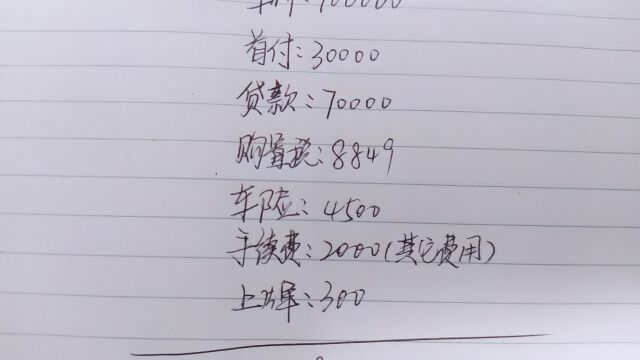 首付：30000
贷款：70000
购置税：8849
车险：4500
手续费：2000(其它费用)
上牌：300